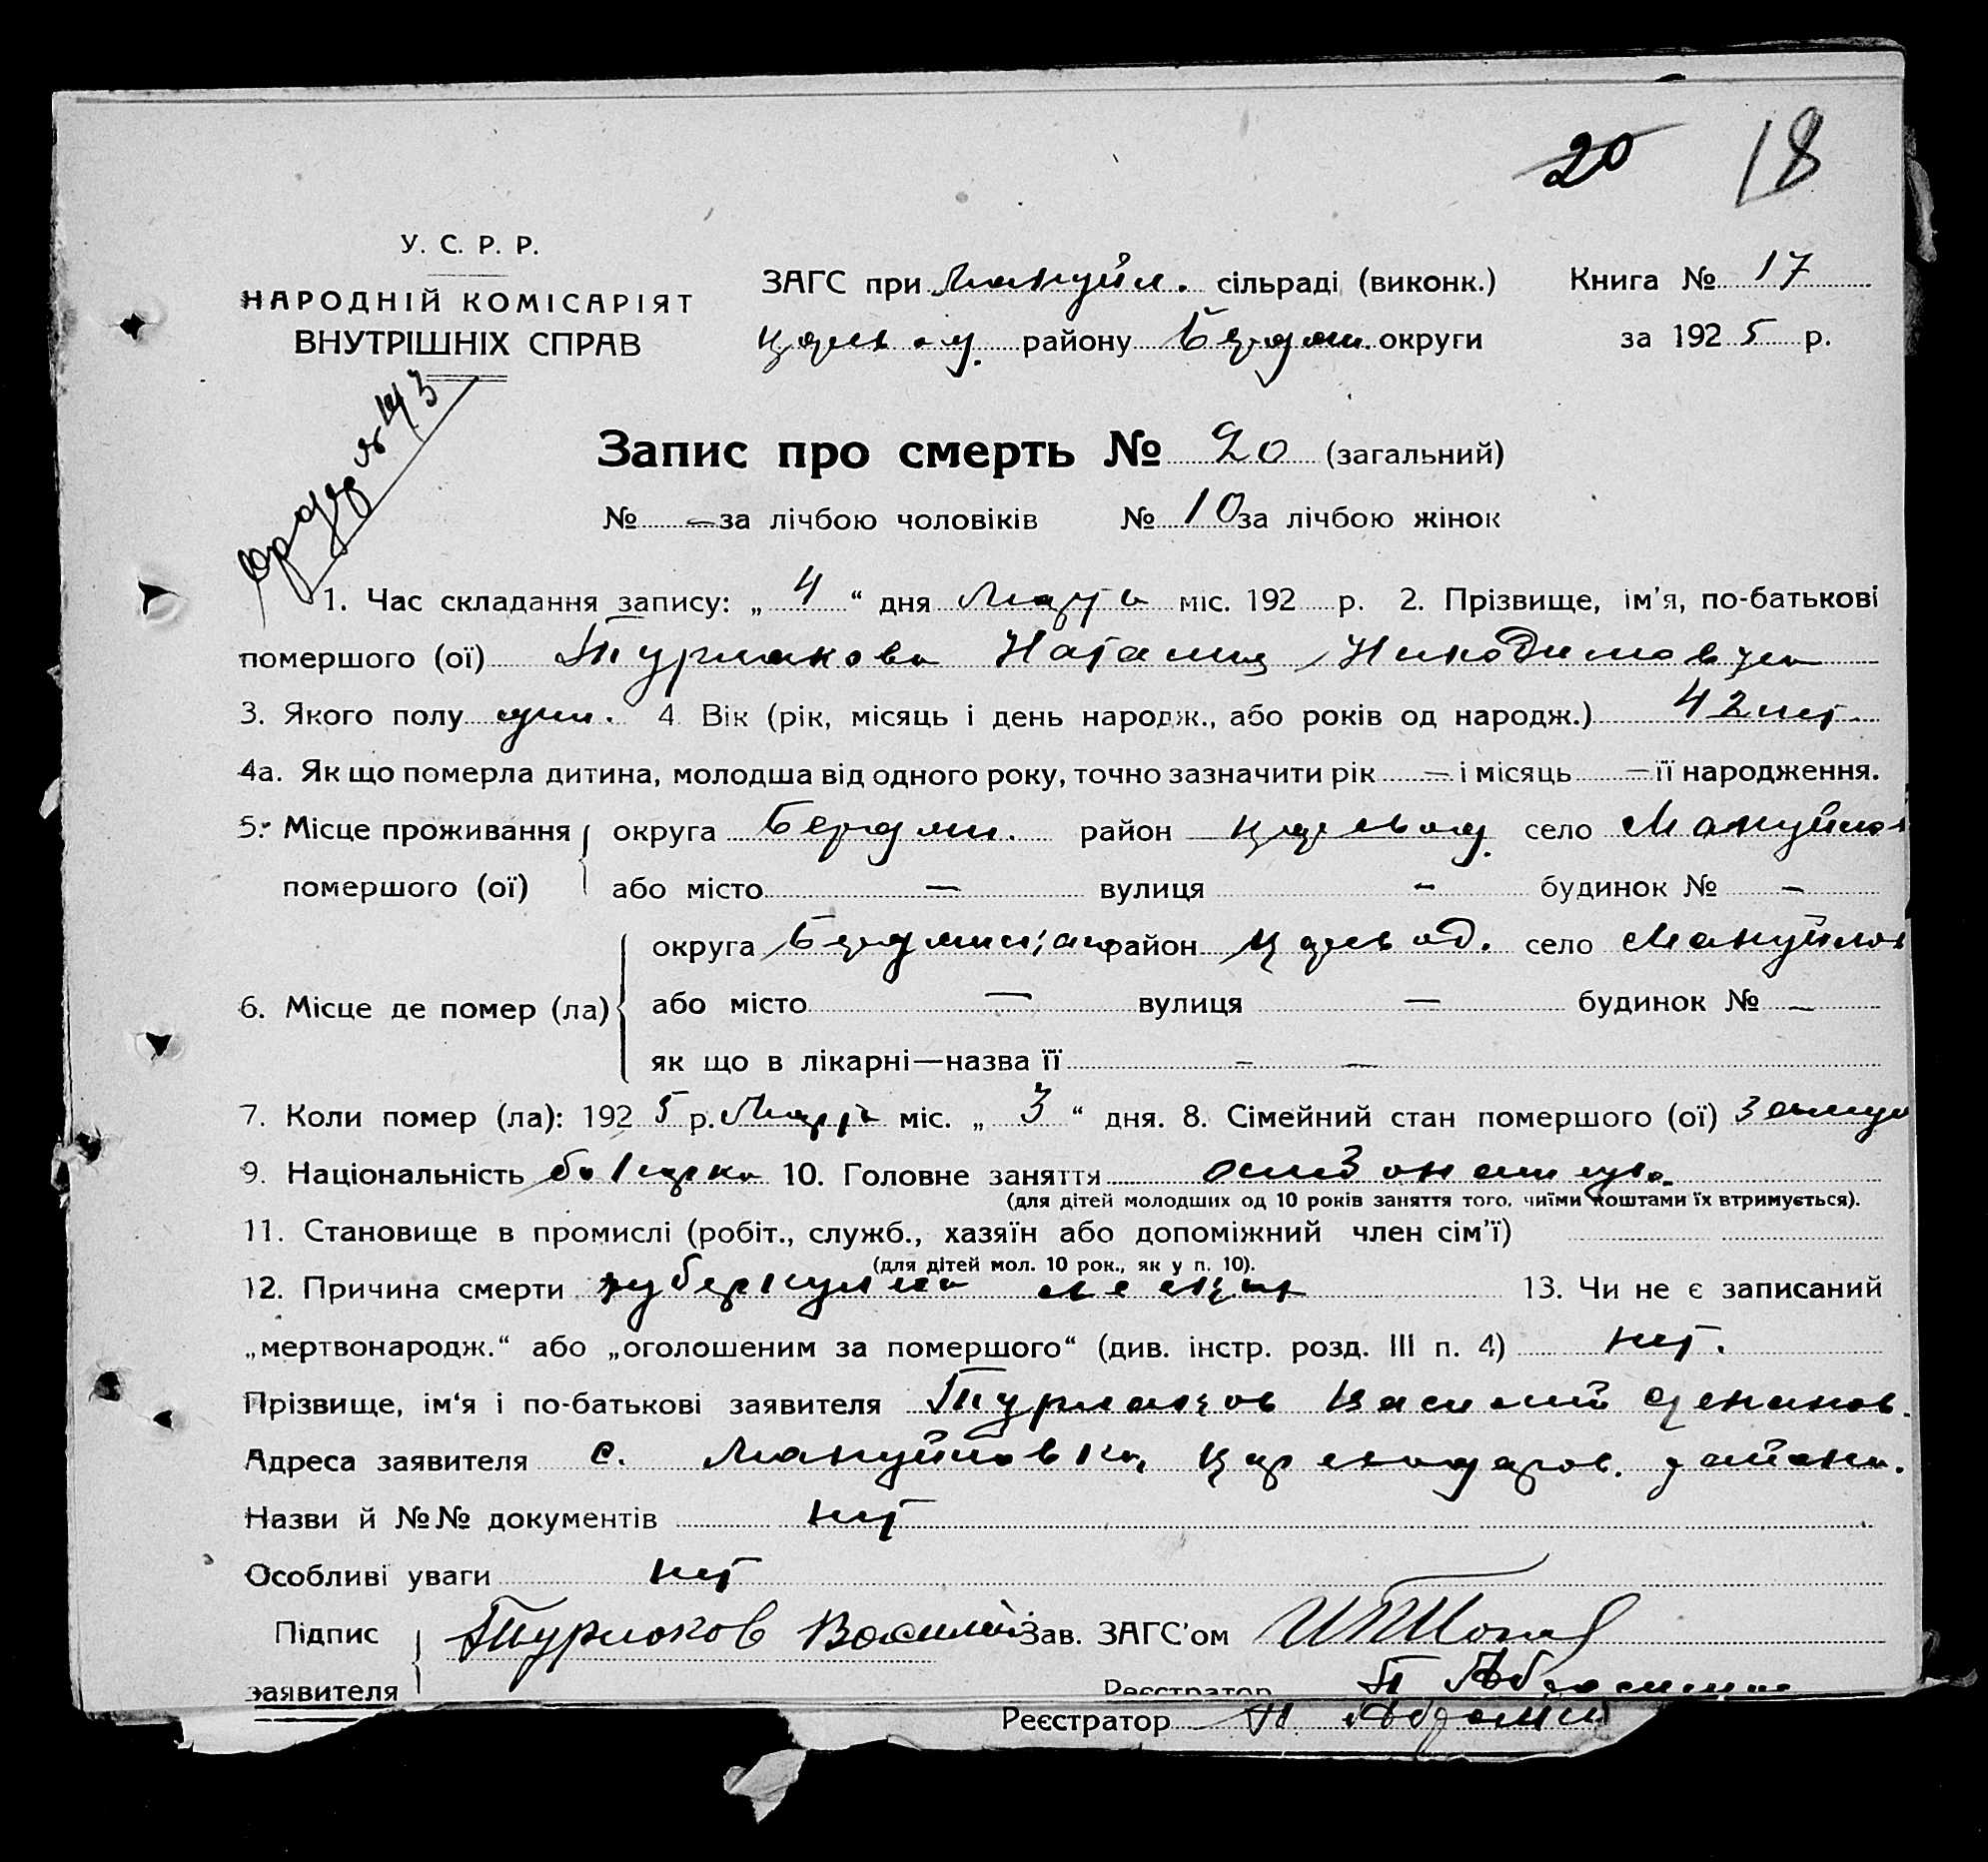 20 18
У. С. Р. Р.
НАРОДНІЙ КОМІСАРІЯТ
ВНУТРІШНІХ СПРАВ
ЗАГС при Мануйл. сільраді (виконк.) Книга № 17
району Бердян. округи за 1925 р.
Запис про смерть № 20 (загальний)
№ — за лічбою чоловіків № 10 за лічбою жінок
1. Час складання запису: „ 4 “ дня Марта міс. 192 р. 2. Прізвище, ім'я, по-батькові
помершого (ої) Турлакова Наталия Никодимовна
3. Якого полу жен. 4. Вік (рік, місяць і день народж., або років од народж.) 42 лет.
4а. Як що померла дитина, молодша від одного року, точно зазначити рік — і місяць — її народження.
5. Місце проживання округа Бердян. район село Мануйлов
помершого (ої) або місто — вулиця — будинок № —
округа район Царевод. село Мануйлов
6. Місце де помер (ла) або місто — вулиця — будинок № —
як що в лікарні—назва її — —
7. Коли помер (ла): 1925 р. Марта міс. „ 3 “ дня. 8. Сімейний стан помершого (ої) Замуж
9. Національність болгарка 10. Головне заняття
(для дітей молодших од 10 років заняття того, чиїми коштами їх втримується).
11. Становище в промислі (робіт., служб., хазяїн або допоміжний член сім'ї)
(для дітей мол. 10 рок., як у п. 10).
12. Причина смерти туберкулез легких 13. Чи не є записаний
„мертвонародж.“ або „оголошеним за помершого“ (див. інстр. розд. III п. 4) нет.
Прізвище, ім'я і по-батькові заявителя Турлаков Василий
Адреса заявителя с. Мануйловка, района.
Назви й №№ документів нет
Особливі уваги нет
Підпис Турлаков Василий Зав. ЗАГС'ом
заявителя Реєстратор
Реєстратор